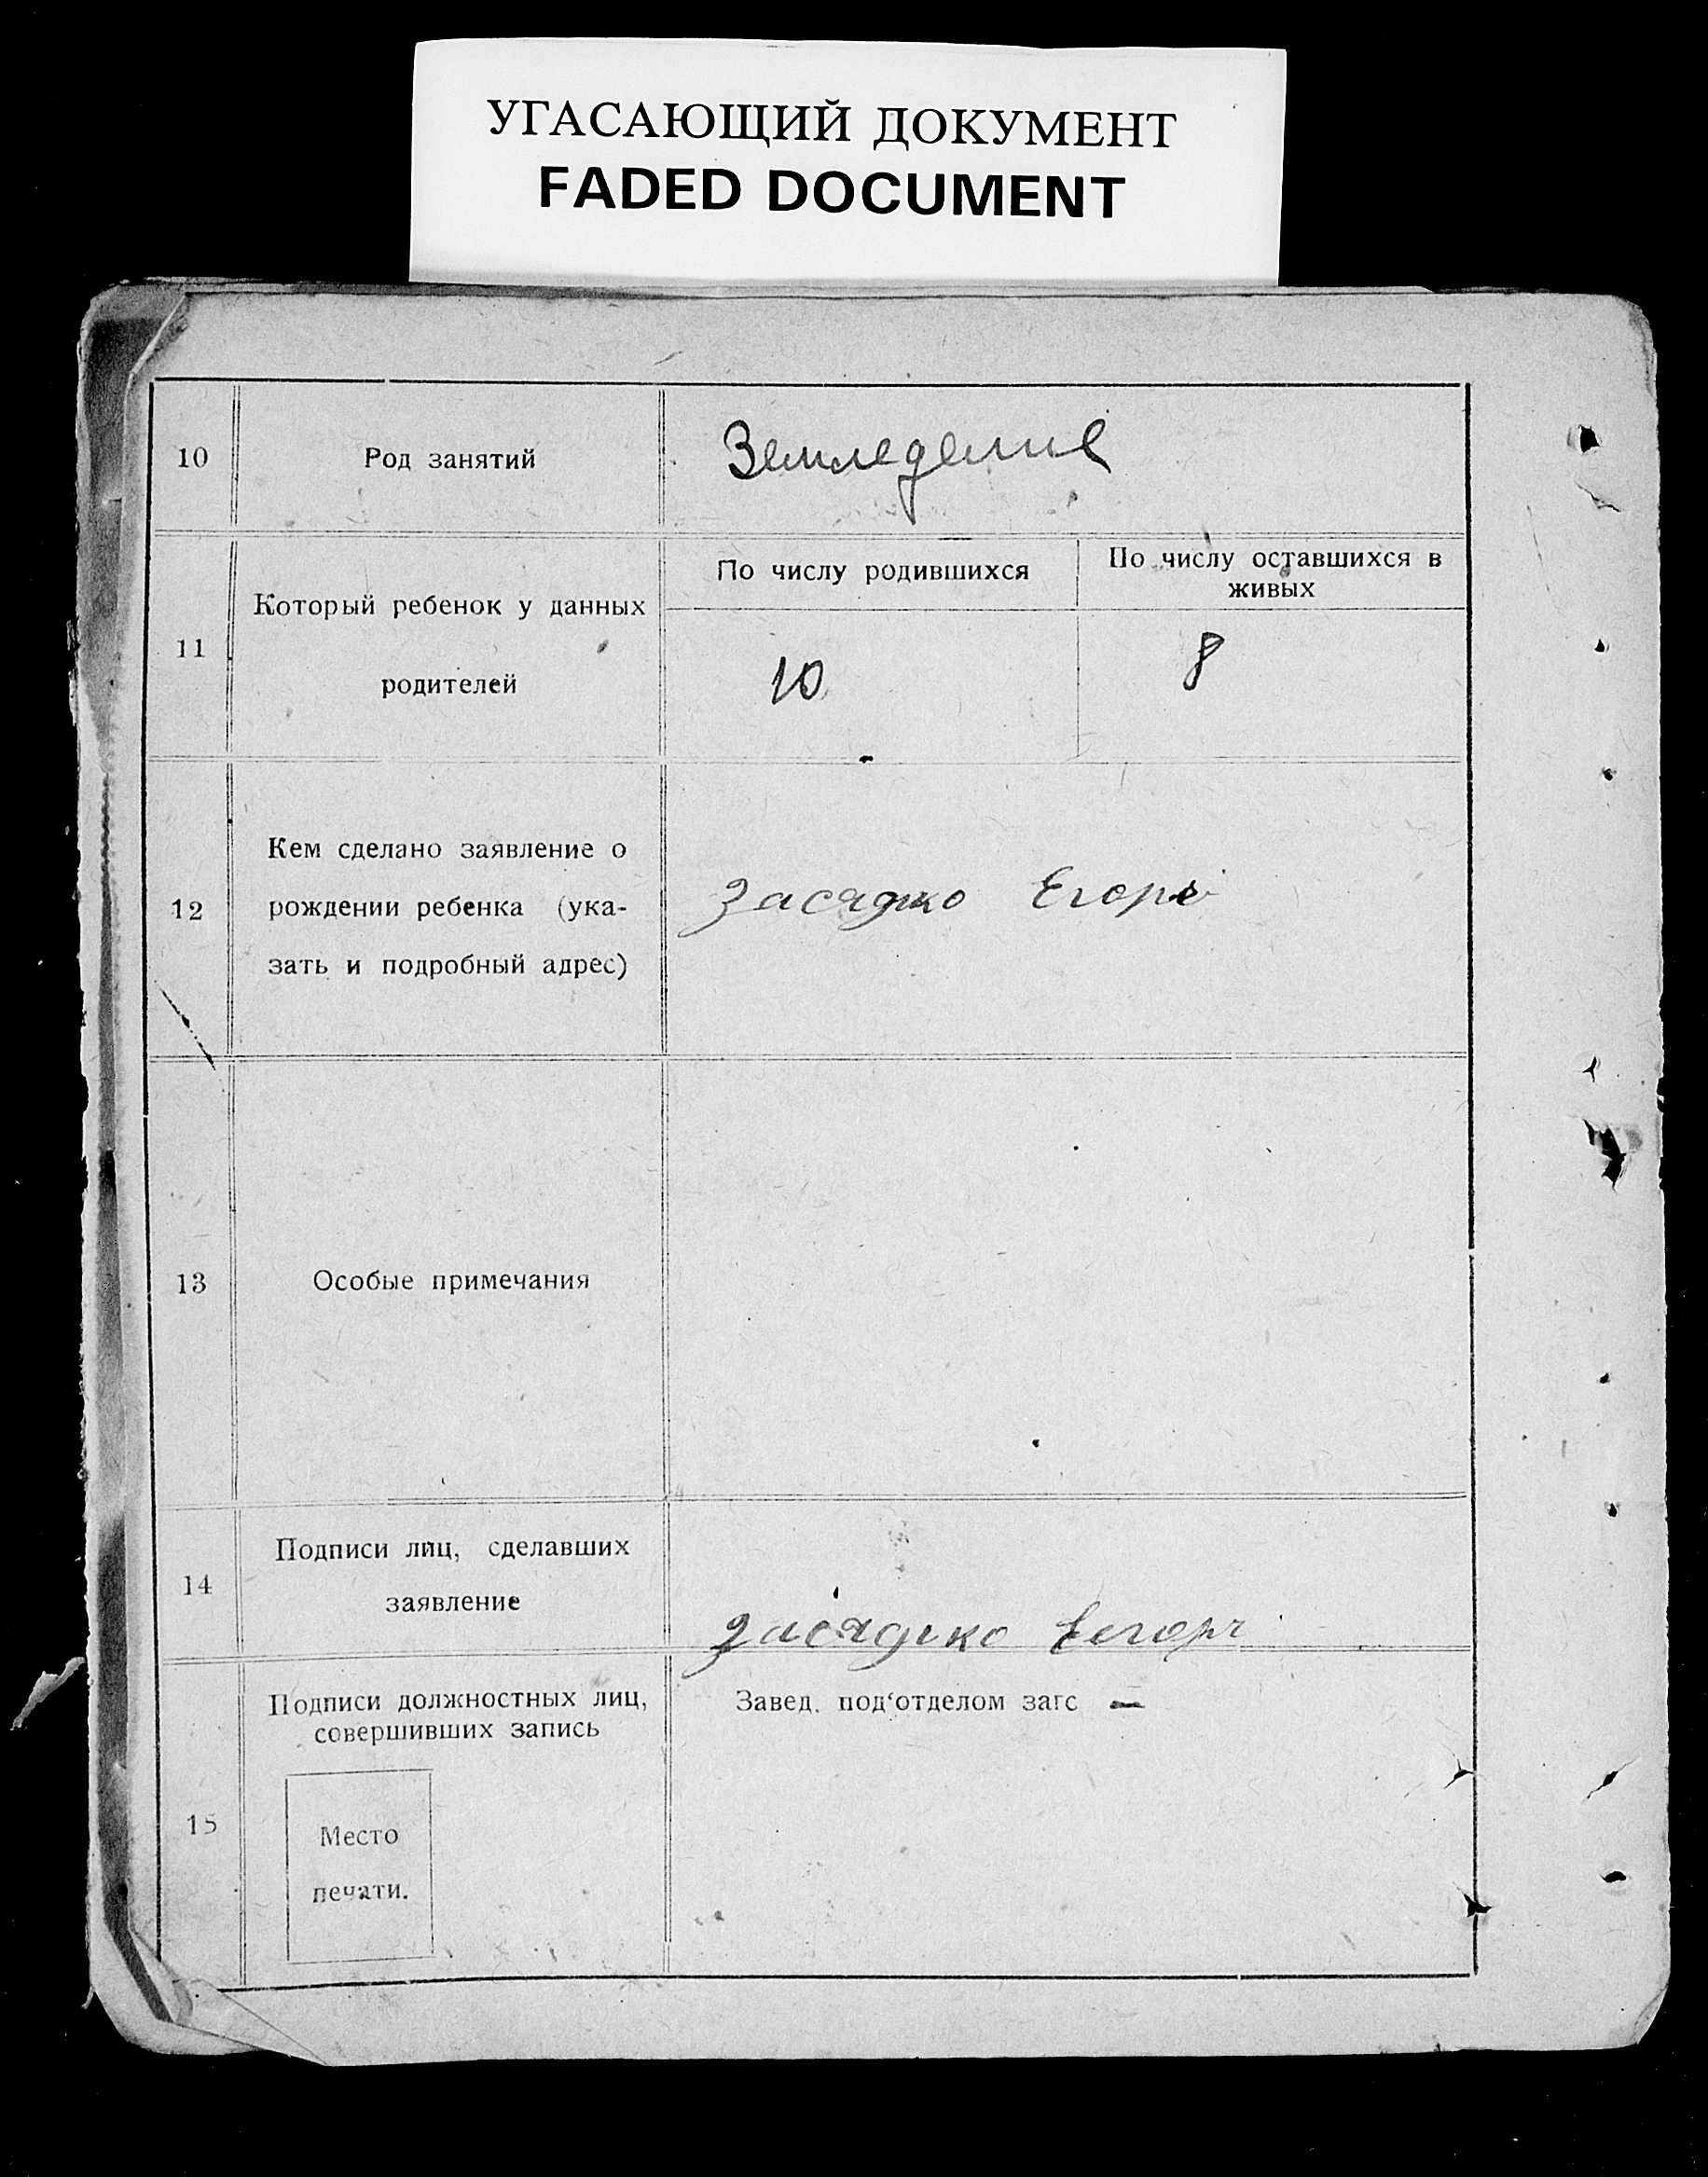 УГАСАЮЩИЙ ДОКУМЕНТ
FADED DOCUMENT
10
Род занятий
Земледелие
11
Который ребенок у данных
родителей
По числу родившихся
По числу оставшихся в
живых
10
8
12
Кем сделано заявление о
рождении ребенка (ука-
зать и подробный адрес)
Засядко Егорь
13
Особые примечания
14
Подписи лиц, сделавших
заявление
Засядько
15
Подписи должностных лиц,
совершивших запись
Завед. под‘отделом загс —
Место
печати.